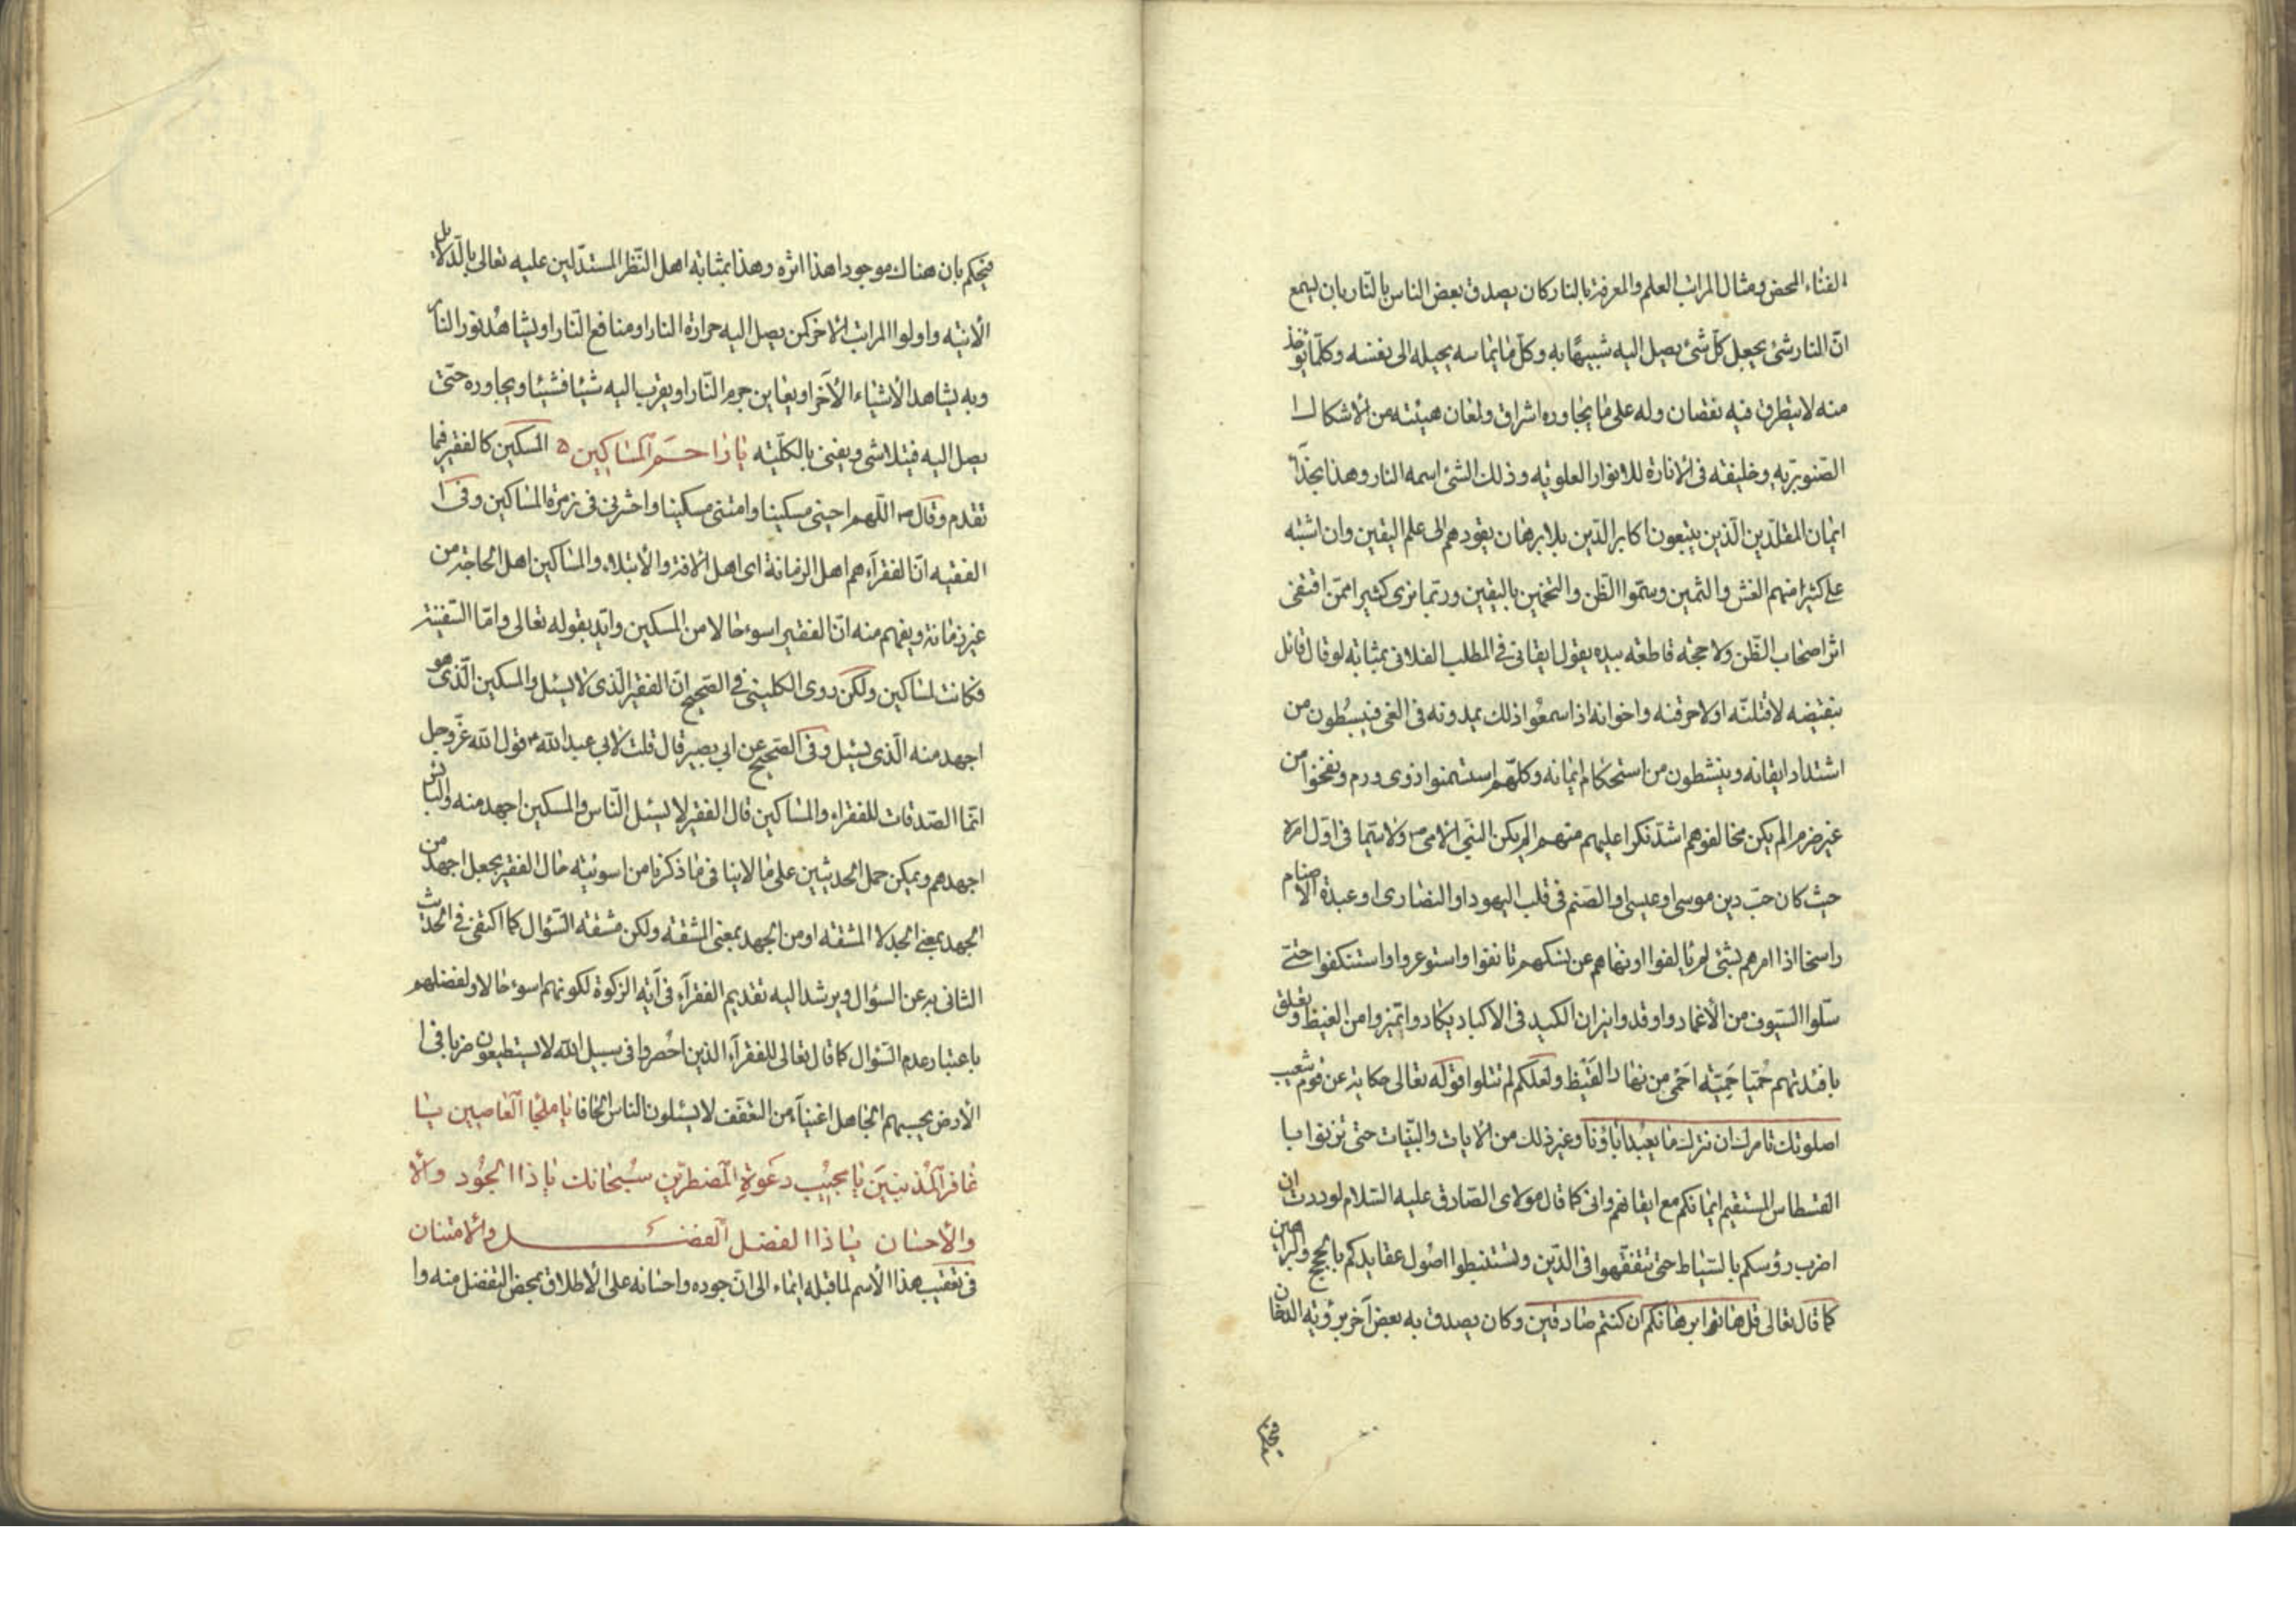 الفناء المحض ومثال المراتب العلم والمعرفة بالنار كان يصدق بعض الناس بالنار بان يسمع
انّ النار شئ يجعل كلّ شئ يصل اليه شبيهًا به وكلّ ما يماسه يحيله الى نفسه وكلّما يؤخذ
منه لا يتطرق فيه نقصان وله على ما يجاوره اشراق ولمعان هيئته من الاشكال
الصنوبريه وخليفته فى الانارة للانوار العلويه وذلك الشئ اسمه النار وهذا بحذاء
ايمان المقلّدين الّذين يتبعون اكابر الدّين بلا برهان يقودهم الى علم اليقين وان اشتبه
على كثير منهم الغش والثمين وسمّوا الظّن والتخمين باليقين وربّما نرى كثيرا ممّن اقتفى
اثر اصحاب الظّن ولا حجّه قاطعه بيده يقول ايقانى فى المطلب الفلانى بمثابه لو قال قائل
بنقيضه لاقتلنّه او لاحرقنه واخوانه اذا سمعُوا ذلك يمدونه فى الغى فيبسُطون من
اشتداد ايقانه وينشطون من استحكام ايمانه وكلّهم استسمنوا ذوى ورم ونفخوا من
غير ضرم الم يكن مخالفوهم اشدّ نكرا عليهم منهم الم يكن النبى الامى ص ولا سيّما فى اوّل امره
حيث كان حبّ دين موسى او عيسى او الصّنم فى قلب اليهود او النصارى او عبدة الاصنام
راسخا اذا امرهم بشئ لم يألفوا او نهاهم عن نسكهم تانفوا واستوعروا واستنكفوا حتّى
سلّوا السّيوف من الأغماد واوقدوا نيران الكبد فى الاكباد يكادوا يتميزوا من الغيظ وتعلق
بافئدتهم حُميّا حَمِيّه احمى من نهار القَيْظ ولعلّكم لم تتلوا قوله تعالى حكاية عن قوم شعيب
اصلوتك تامرك ان نترك ما يعبد اباؤنا وغير ذلك من الايات والبيّنات حتى تزنوا با
القسطاس المستقيم ايمانكم مع ايقانهم وانى كما قال مولاى الصّادق عليه السّلام لوددت ان
اضرب رؤسكم بالسّياط حتى تتفقّهوا فى الدّين وتستنبطوا اصُول عقايدكم بالحجج والبراهين
كما قال تعالى قل هاتوا برهانكم ان كنتم صادقين وكان يصدق به بعض آخر برؤيه الدخان
فيحكم
فيحكم بان هناك موجودا هذا اثره وهذا بمثابه اهل النّظر المستدلين عليه تعالى بالدّلايل
الأنيّه واولوا المراتب الاخر كمن يصل اليه حرارة النار او منافع النّار او يشاهد نور النار
وبه يشاهد الأشياء الأخر او يعاين جرم النّار او يقرب اليه شيئا فشيئا ويجاوره حتّى
يصل اليه فيتلاشى ويفنى بالكليّه يا راحم المساكين ه المسكين كالفقير فيما
تقدم وقال ص اللّهم احينى مسكينا وامتنى مسكينا واحشرنى فى زمرة المساكين وفى ا
الفقيه انّ الفقرآء هم اهل الزمانة اى اهل الافة والابتلاء والمساكين اهل الحاجة من
غير زمانة ويفهم منه انّ الفقير اسوء حالا من المسكين وايّد بقوله تعالى وامّا السّفينة
فكانت لمساكين ولكن روى الكلينى فى الصّحيح انّ الفقير الّذى لا يسئل والمسكين الّذى هو
اجهد منه الّذى يسئل وفى الصّحيح عن ابي بصير قال قلت لابي عبد الله ع قول الله عزّوجل
انّما الصّدقات للفقراء والمساكين قال الفقير لا يسئل النّاس والمسكين اجهد منه والبائس
اجهدهم ويمكن حمل الحديثين على ما لاينافى ما ذكرنا من اسوئيته حال الفقير بجعل اجهد من
الجهد بمعنى الجد لا المشقه او من الجهد بمعنى المشقه ولكن مشقه السّؤال كما اكتفى فى الحديث
الثانى به عن السؤال ويرشد اليه تقديم الفقرآء فى آيه الزكوة لكونهم اسوء حالا ولفضلهم
باعتبار عدم السّؤال كما قال تعالى للفقرآء الذين احُصروا فى سبيل الله لا يستطيعون ضربا فى ا
الأرض يحسبهم الجاهل اغنيآء من التعفّف لا يسئلون الناس الحافا يا ملجأ العاصين يا
غافر المذنبين يا مجيب دعوة المضطرين سبحانك يا ذا الجُود والأ
والأحسان يا ذا الفضل الفضل والامتنان
فى تعقيب هذا الأسم لما قبله ايماء الى انّ جوده واحسانه على الأطلاق بمحض التفضل منه وا